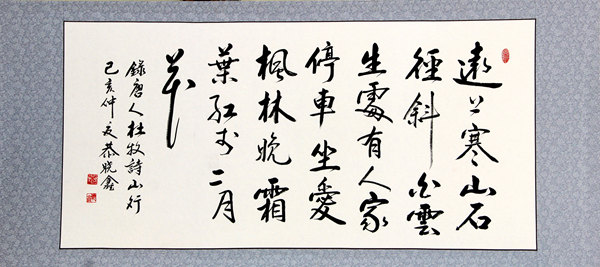 遠上寒山石
徑斜白雲
生處有人家
停車坐愛
楓林晚霜
葉紅於二月
花
錄唐人杜牧詩山行
己亥仲夏恭曉鑫